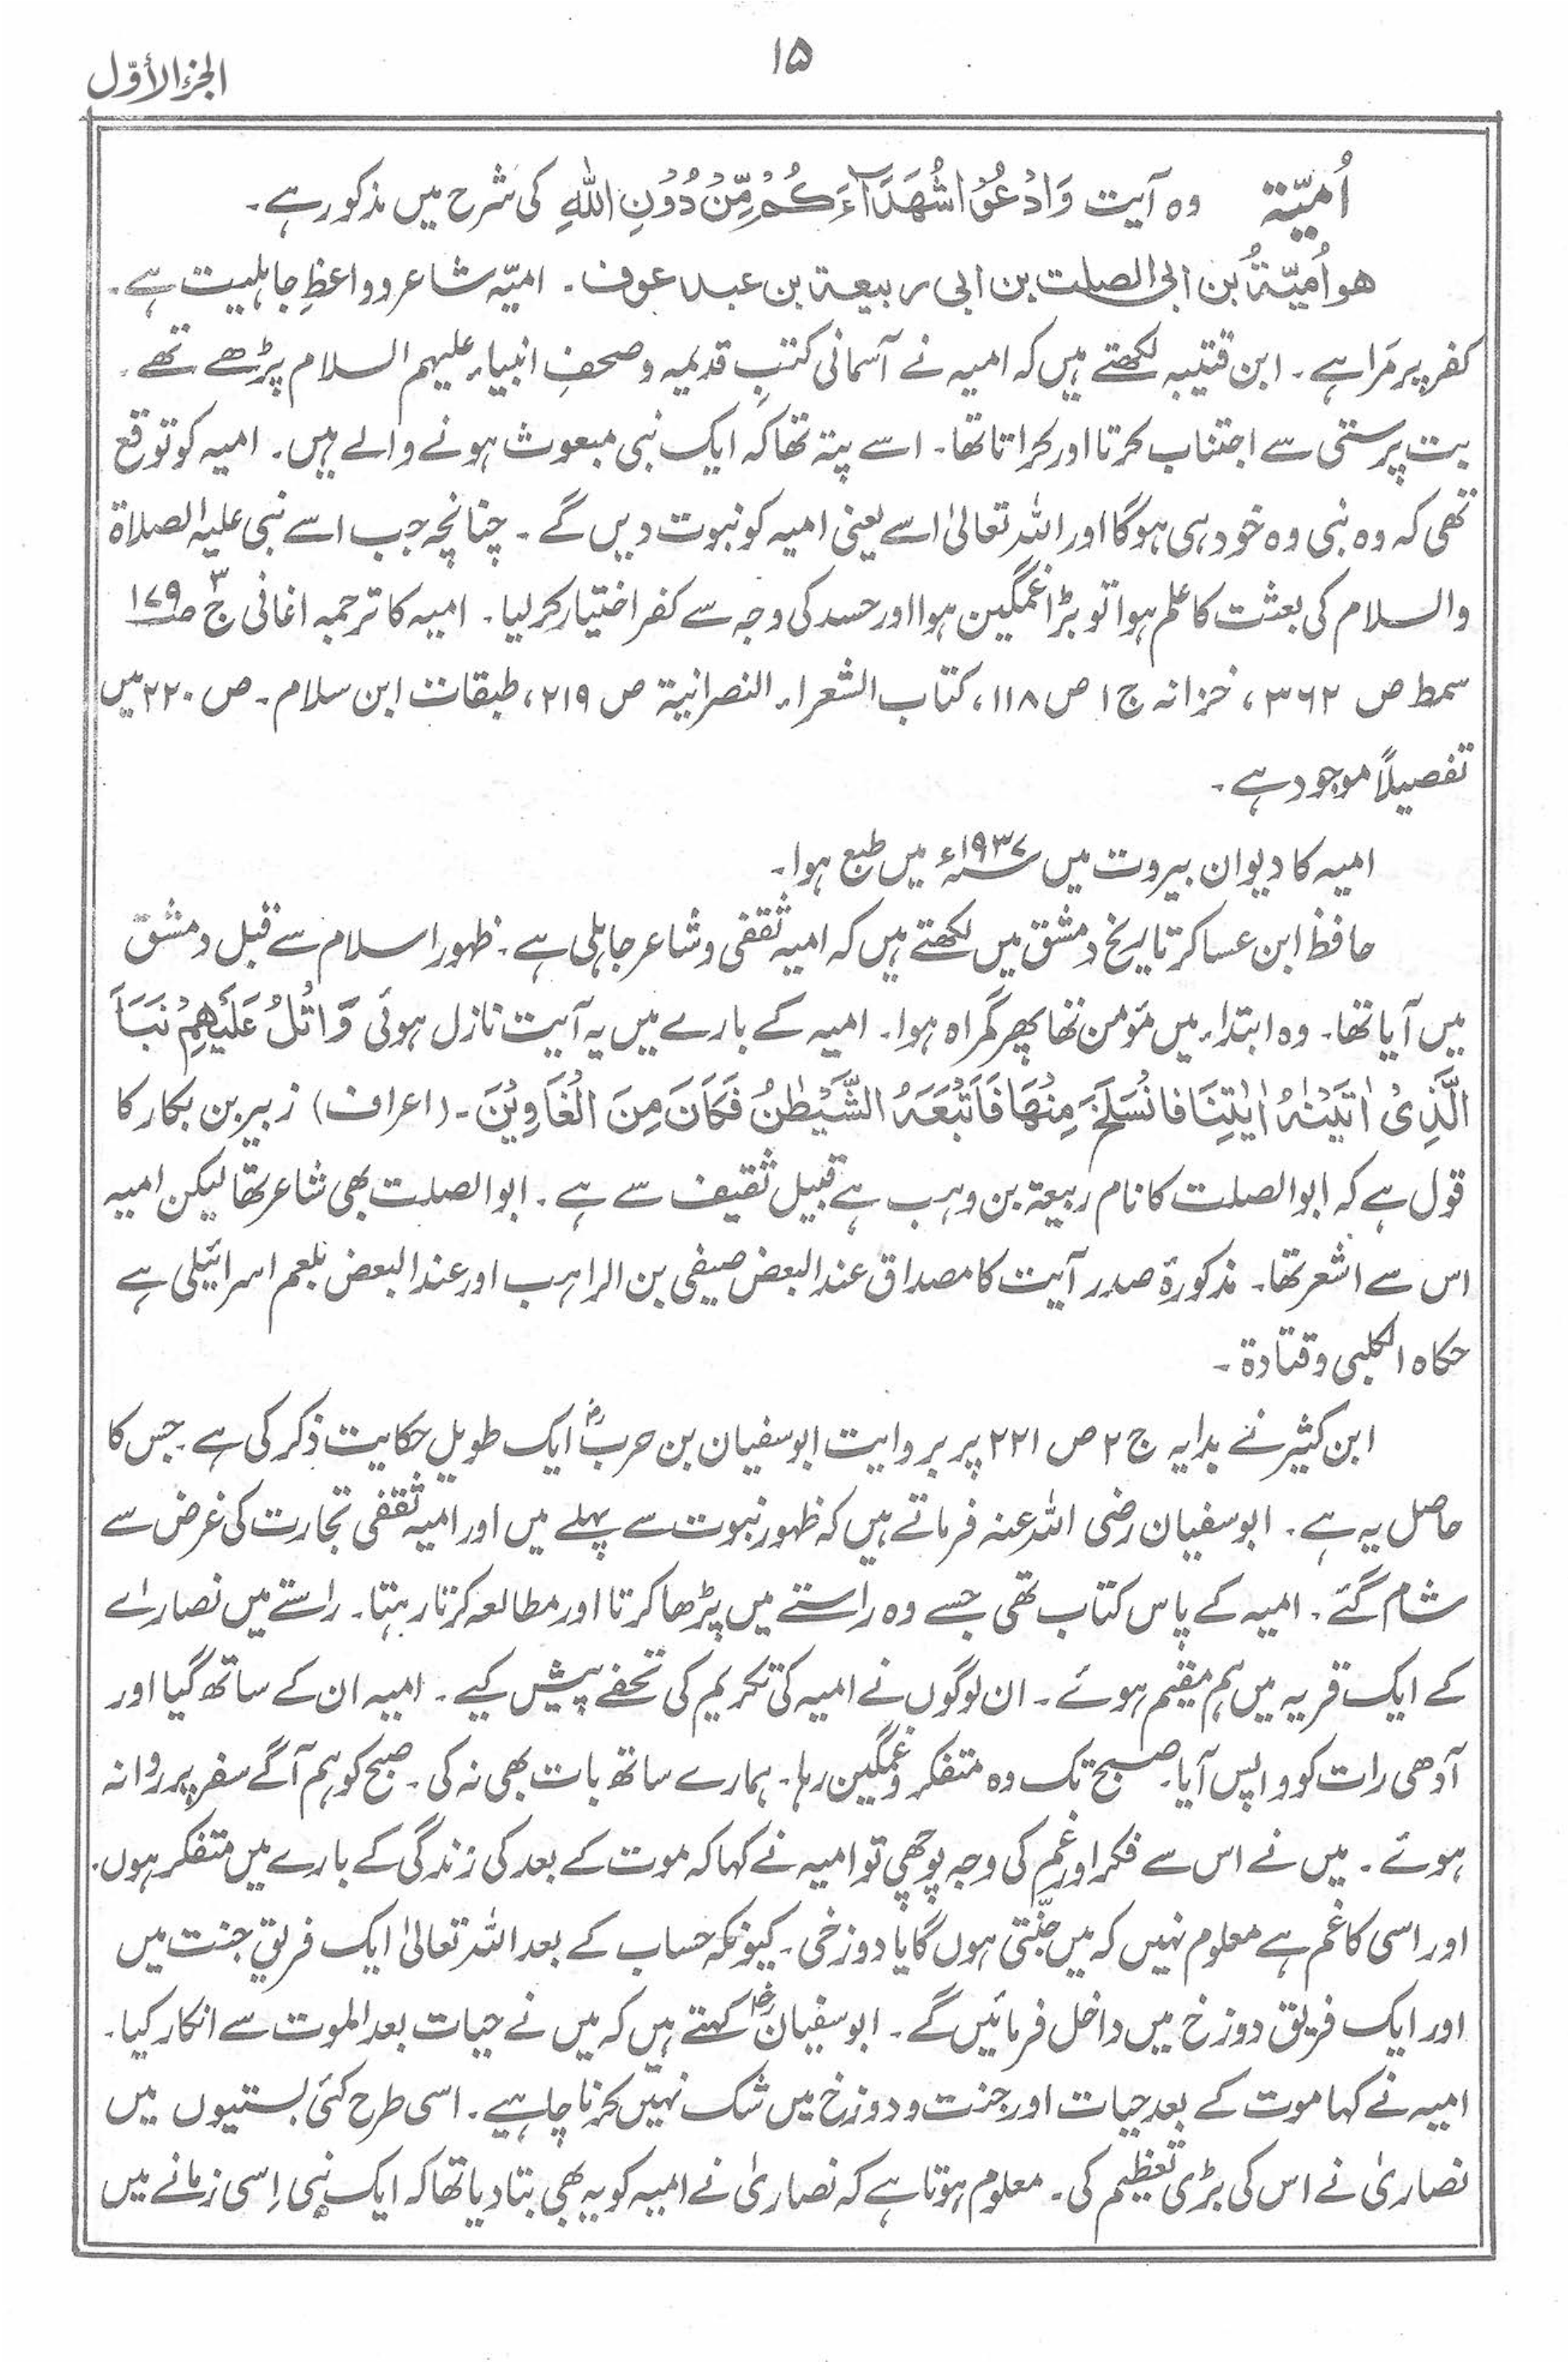 ۱۵
الجزء الأوّل
اُمیّۃ وہ آیت وَادْعُوْا شُھَدَآءَکُمْ مِّنْ دُوْنِ اللہِ کی شرح میں مذکور ہے۔
ھو اُمیّۃُ بن ابی الصلت بن ابی ربیعۃ بن عبد عوف۔ امیّہ شاعر و واعظِ جاہلیت ہے۔
کفر پر مَرا ہے۔ ابن قتیبہ لکھتے ہیں کہ امیہ نے آسمانی کتبِ قدیمہ و صحفِ انبیاء علیہم السلام پڑھے تھے۔
بت پرستی سے اجتناب کرتا اور کراتا تھا۔ اسے پتہ تھا کہ ایک نبی مبعوث ہونے والے ہیں۔ امیہ کو توقع
تھی کہ وہ نبی وہ خود ہی ہوگا اور اللہ تعالیٰ اسے یعنی امیہ کو نبوت دیں گے۔ چنانچہ جب اسے نبی علیہ الصلاۃ
والسلام کی بعثت کا علم ہوا تو بڑا غمگین ہوا اور حسد کی وجہ سے کفر اختیار کر لیا۔ امیہ کا ترجمہ اغانی ج ۳ ص ۱۷۹
سمط ص ۳۶۲، خزانہ ج ۱ ص ۱۱۸، کتاب الشعراء النصرانیۃ ص ۲۱۹، طبقات ابن سلام۔ ص ۲۲۰ میں
تفصیلاً موجود ہے۔
امیہ کا دیوان بیروت میں ۱۹۳۷ء میں طبع ہوا۔
حافظ ابن عساکر تاریخ دمشق میں لکھتے ہیں کہ امیہ ثقفی و شاعر جاہلی ہے۔ ظہور اسلام سے قبل دمشق
میں آیا تھا۔ وہ ابتداء میں مؤمن تھا پھر گمراہ ہوا۔ امیہ کے بارے میں یہ آیت نازل ہوئی وَاتْلُ عَلَیْھِمْ نَبَاَ
الَّذِیْ اٰتَیْنٰہُ اٰیٰتِنَا فَانْسَلَخَ مِنْھَا فَاَتْبَعَہُ الشَّیْطٰنُ فَکَانَ مِنَ الْغَاوِیْنَ۔ (اعراف) زبیر بن بکار کا
قول ہے کہ ابوالصلت کا نام ربیعۃ بن وہب ہے قبیل ثقیف سے ہے۔ ابوالصلت بھی شاعر تھا لیکن امیہ
اس سے اشعر تھا۔ مذکورۂ صدر آیت کا مصداق عند البعض صیفی بن الراہب اور عند البعض بلعم اسرائیلی ہے
حکاہ الکلبی و قتادۃ۔
ابن کثیر نے بدایہ ج ۲ ص ۲۲۱ پر بروایت ابوسفیان بن حربؓ ایک طویل حکایت ذکر کی ہے۔ جس کا
حاصل یہ ہے۔ ابوسفیان رضی اللہ عنہ فرماتے ہیں کہ ظہور نبوت سے پہلے میں اور امیہ ثقفی تجارت کی غرض سے
شام گئے۔ امیہ کے پاس کتاب تھی جسے وہ راستے میں پڑھا کرتا اور مطالعہ کرتا رہتا۔ راستے میں نصاراے
کے ایک قریہ میں ہم مقیم ہوئے۔ ان لوگوں نے امیہ کی تکریم کی تحفے پیش کیے۔ امیہ ان کے ساتھ گیا اور
آدھی رات کو واپس آیا۔ صبح تک وہ متفکر و غمگین رہا۔ ہمارے ساتھ بات بھی نہ کی۔ صبح کو ہم آگے سفر پر روانہ
ہوئے۔ میں نے اس سے فکر اور غم کی وجہ پوچھی تو امیہ نے کہا کہ موت کے بعد کی زندگی کے بارے میں متفکر ہوں۔
اور اسی کا غم ہے معلوم نہیں کہ میں جنّتی ہوں گا یا دوزخی۔ کیونکہ حساب کے بعد اللہ تعالیٰ ایک فریق جنت میں
اور ایک فریق دوزخ میں داخل فرمائیں گے۔ ابوسفیانؓ کہتے ہیں کہ میں نے حیات بعد الموت سے انکار کیا۔
امیہ نے کہا موت کے بعد حیات اور جنت و دوزخ میں شک نہیں کرنا چاہیے۔ اسی طرح کئی بستیوں میں
نصاریٰ نے اس کی بڑی تعظیم کی۔ معلوم ہوتا ہے کہ نصاریٰ نے امیہ کو یہ بھی بتا دیا تھا کہ ایک نبی اِسی زمانے میں